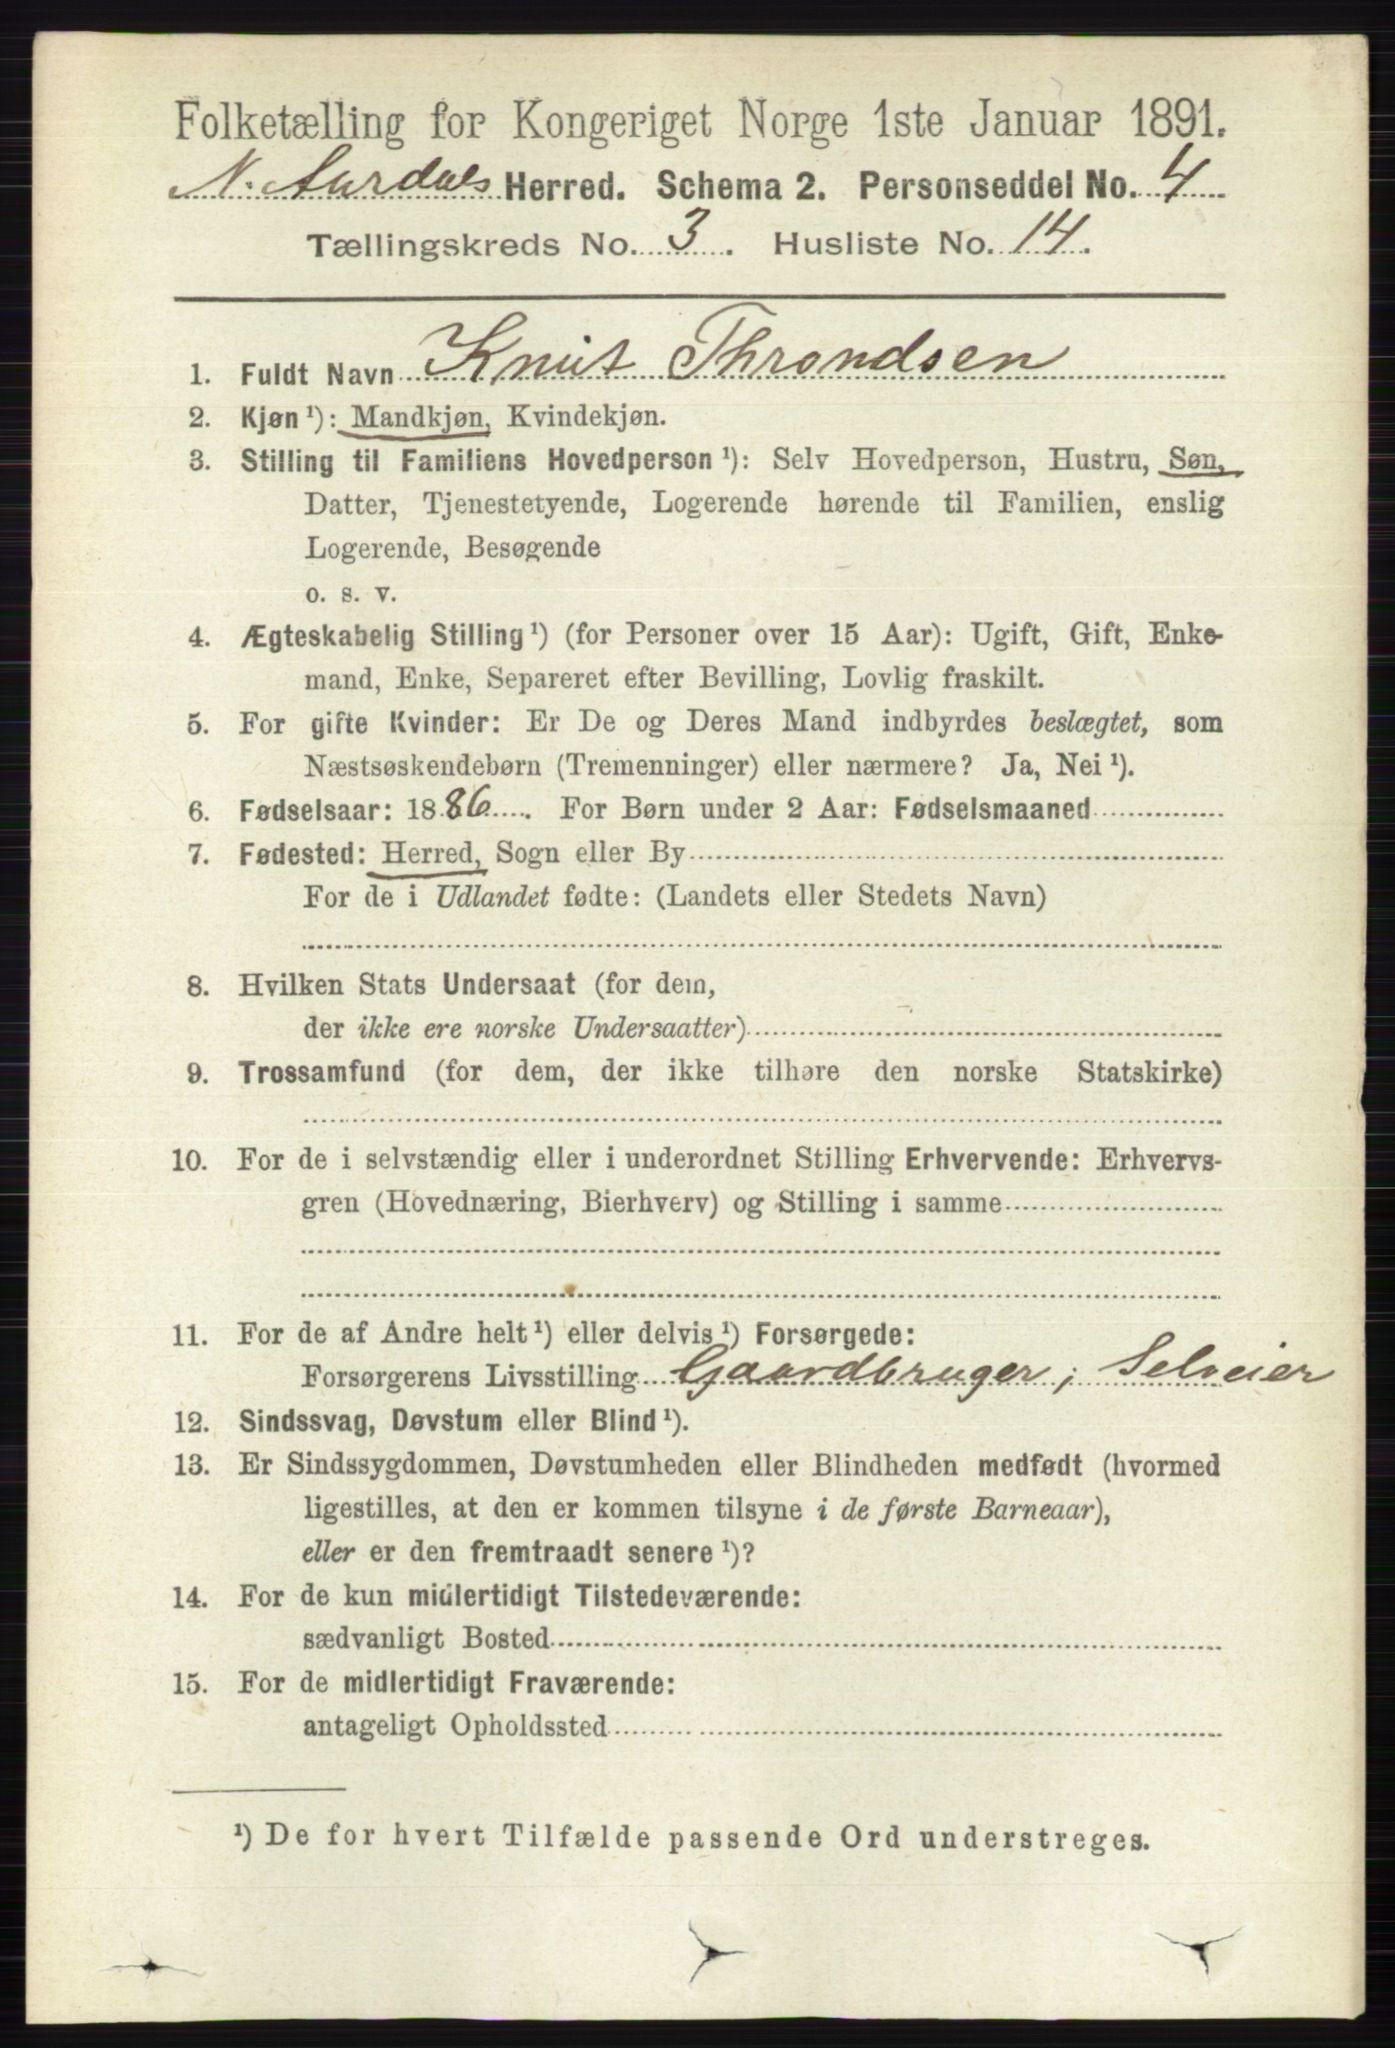 Folketælling for Kongeriget Norge 1ste Januar 1891.
N. Aurdals Herred. Schema 2. Personseddel No. 4
Tællingskreds No. 3. Husliste No. 14.
1. Fuldt Navn Knut Throndsen
2. Kjøn ¹): Mandkjøn, Kvindekjøn.
3. Stilling til Familiens Hovedperson ¹): Selv Hovedperson, Hustru, Søn,
Datter, Tjenestetyende, Logerende hørende til Familien, enslig
Logerende, Besøgende
o. s. v.
4. Ægteskabelig Stilling ¹) (for Personer over 15 Aar): Ugift, Gift, Enke-
mand, Enke, Separeret efter Bevilling, Lovlig fraskilt.
5. For gifte Kvinder: Er De og Deres Mand indbyrdes beslægtet, som
Næstsøskendebørn (Tremenninger) eller nærmere? Ja, Nei ¹).
6. Fødselsaar: 1886. For Børn under 2 Aar: Fødselsmaaned
7. Fødested: Herred, Sogn eller By
For de i Udlandet fødte: (Landets eller Stedets Navn)
8. Hvilken Stats Undersaat (for dem,
der ikke ere norske Undersaatter)
9. Trossamfund (for dem, der ikke tilhøre den norske Statskirke)
10. For de i selvstændig eller i underordnet Stilling Erhvervende: Erhvervs-
gren (Hovednæring, Bierhverv) og Stilling i samme
11. For de af Andre helt ¹) eller delvis ¹) Forsørgede:
Forsørgerens Livsstilling Gaardbruger; Selveier
12. Sindssvag, Døvstum eller Blind ¹).
13. Er Sindssygdommen, Døvstumheden eller Blindheden medfødt (hvormed
ligestilles, at den er kommen tilsyne i de første Barneaar),
eller er den fremtraadt senere ¹)?
14. For de kun midlertidigt Tilstedeværende:
sædvanligt Bosted
15. For de midlertidigt Fraværende:
antageligt Opholdssted
¹) De for hvert Tilfælde passende Ord understreges.